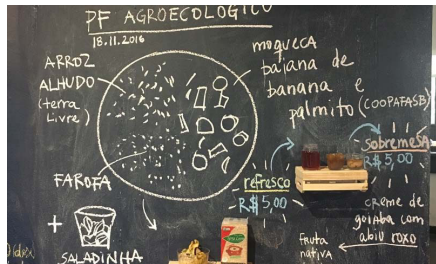 PF AGROECOLÓGICO
18.11.2016
ARROZ
ALHUDO
(terra
Livre)
moqueca
baiana de
banana e
palmito (COOPAFASB)
FAROFA
+
SALADINHA
refresco
R$ 5,00
sobremesa
R$ 5,00
creme de
goiaba com
abiu roxo
fruta
nativa